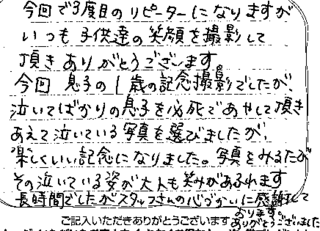 今回で3度目のリピーターになりますが
いつも子供達の笑顔を撮影して
頂きありがとうございます。
今回 息子の1歳の記念撮影でしたが、
泣いてばかりの息子を必死であやして頂き
あえて泣いている写真を選びましたが、
楽しくいい記念になりました。写真をみるたび
その泣いている姿が大人も笑みがあふれます
長時間でしたがスタッフさんの心づかいに感謝して
おります。
ありがとうございました
ご記入いただきありがとうございます